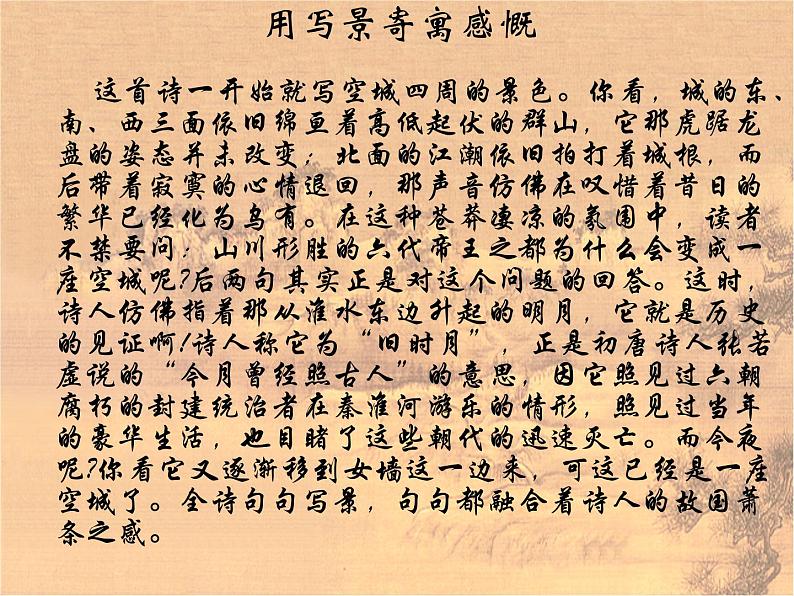 用写景寄寓感慨
这首诗一开始就写空城四周的景色。你看，城的东、
南、西三面依旧绵亘着高低起伏的群山，它那虎踞龙
盘的姿态并未改变；北面的江潮依旧拍打着城根，而
后带着寂寞的心情退回，那声音仿佛在叹惜着昔日的
繁华已经化为乌有。在这种苍莽凄凉的氛围中，读者
不禁要问：山川形胜的六代帝王之都为什么会变成一
座空城呢?后两句其实正是对这个问题的回答。这时，
诗人仿佛指着那从淮水东边升起的明月，它就是历史
的见证啊!诗人称它为“旧时月”，正是初唐诗人张若
虚说的“今月曾经照古人”的意思，因它照见过六朝
腐朽的封建统治者在秦淮河游乐的情形，照见过当年
的豪华生活，也目睹了这些朝代的迅速灭亡。而今夜
呢?你看它又逐渐移到女墙这一边来，可这已经是一座
空城了。全诗句句写景，句句都融合着诗人的故国萧
条之感。